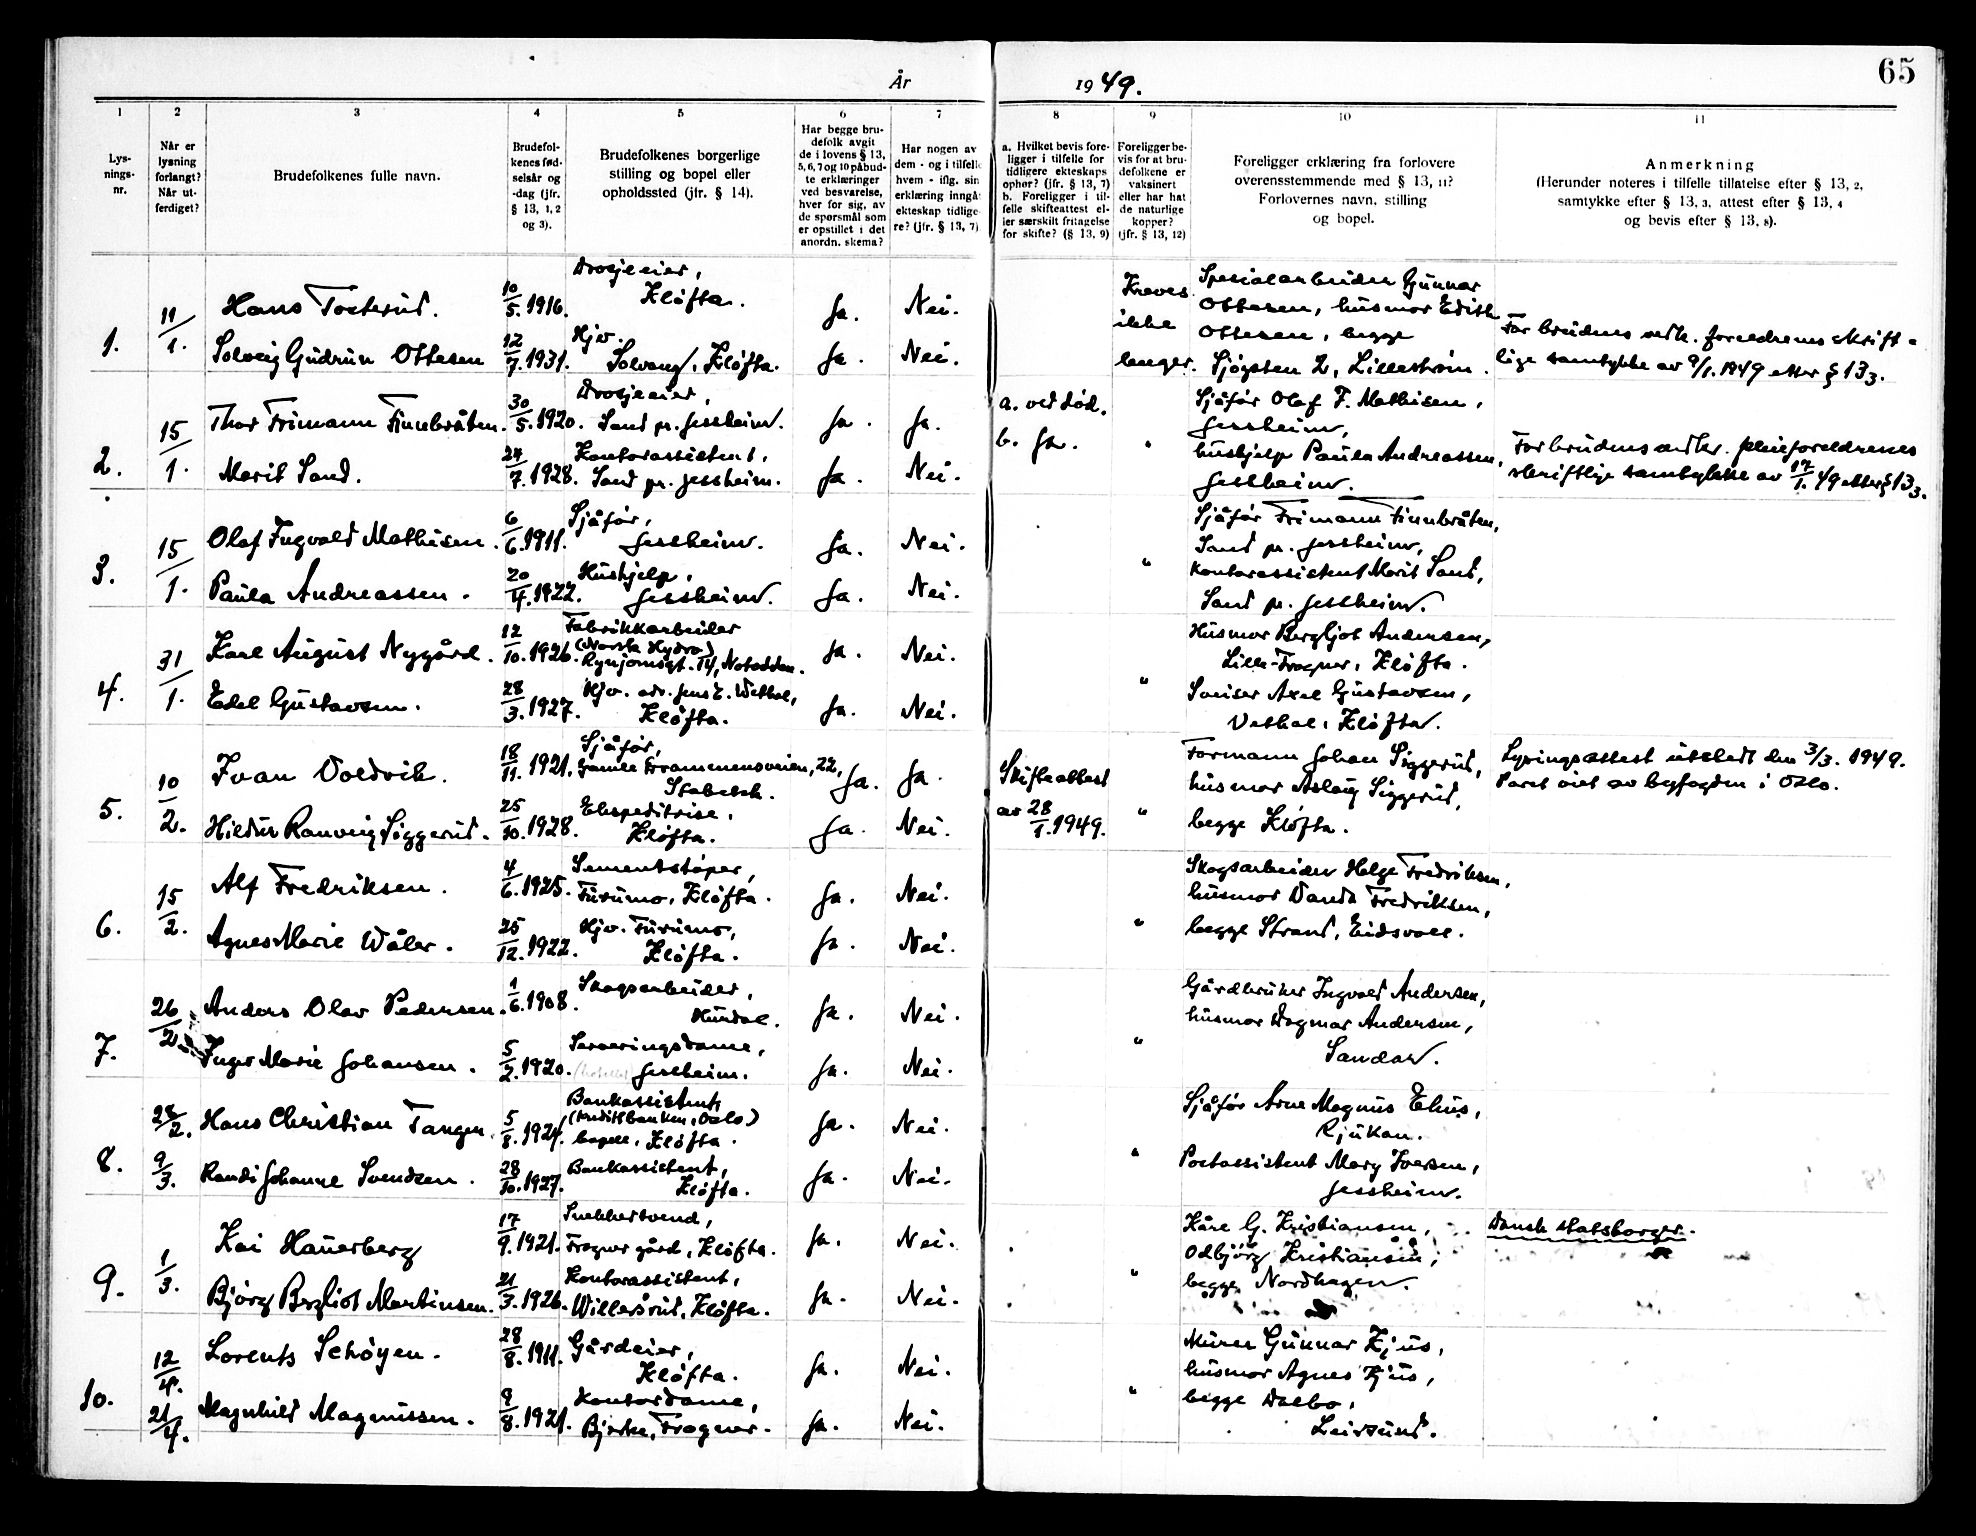 65
År 1949.
1 2 3 4 5 6 7 8 9 10 11
Lys-
nings-
nr.
Når er
lysning
forlangt?
Når ut-
ferdiget?
Brudefolkenes fulle navn.
Brudefol-
kenes fød-
selsår og
-dag (jfr.
§ 13, 1, 2
og 3).
Brudefolkenes borgerlige
stilling og bopel eller
opholdssted (jfr. § 14).
Har begge bru-
defolk avgit
de i lovens § 13,
5, 6, 7 og 10 påbud-
te erklæringer
ved besvarelse,
hver for sig, av
de spørsmål som
er opstillet i det
anordn. skema?
Har nogen av
dem - og i tilfelle
hvem - iflg. sin
erklæring inngå
ekteskap tidlige-
re? (jfr. § 13, 7)
a. Hvilket bevis fore-
ligger i tilfelle for
tidligere ekteskaps
ophør? (jfr. § 13, 7)
b. Foreligger i til-
felle skifteattest el-
ler særskilt fritagelse
for skifte? (§ 13, 9)
Foreligger be-
vis for at bru-
defolkene er
vaksinert
eller har hat
de naturlige
kopper?
(jfr. § 13, 12)
Foreligger erklæring fra forlovere
overensstemmende med § 13, 11?
Forlovernes navn, stilling
og bopel.
Anmerkning
(Herunder noteres i tilfelle tillatelse efter § 13, 2,
samtykke efter § 13, 3, attest efter § 13, 4
og bevis efter § 13, 8).
1. 11/1.
Hans Torterud. 10/5. 1916. Drosjeeier,
Kløfta. Ja. Nei.
Solveig Gudrun Ottesen 12/7. 1931. Hjv.
Solvang, Kløfta. Ja. Nei.
Kreves
ikke
lenger.
Spesialarbeider Gunnar
Ottesen, husmor Edith
Ottesen, begge
Sjøgsten 2, Lillestrøm.
For brudens vedk. foreldrenes skrift-
lige samtykke av 9/1. 1949 etter § 13 3.
2. 15/1.
Thor Frimann Finnbråten. 30/5. 1920. Drosjeeier,
Sand pr. Jessheim. Ja. Ja.
Marit Sand. 24/7. 1928. Kontorassistent,
Sand pr. Jessheim. Ja. Nei.
a. ved død.
b. Ja.
"
Sjåfør Olaf F. Mathisen,
Jessheim,
hushjelp Paula Andreassen,
Jessheim.
For brudens vedk. pleieforeldrenes
skriftlige samtykke av 17/1. 49 etter § 13 3.
3. 15/1.
Olaf Ingvald Mathisen. 6/6. 1911. Sjåfør,
Jessheim. Ja. Nei.
Paula Andreassen. 20/4. 1922. Hushjelp,
Jessheim. Ja. Nei.
"
Sjåfør Frimann Finnbråten,
Sand pr. Jessheim,
Kontorassistent Marit Sand,
Sand pr. Jessheim.
4. 31/1.
Karl August Nygård. 12/10. 1926. Fabrikkarbeider
(Norsk Hydro)
14, Notodden. Ja. Nei.
Edel Gustavsen. 28/3. 1927. Hjv. adv. Jens E. Wethal,
Kløfta. Ja. Nei.
"
Husmor Bergljot Andersen,
Lille-Frogner, Kløfta.
Sveiser Axel Gustavsen,
Vethal, Kløfta.
5. 10/2.
Ivan Voldvik. 18/11. 1921. Sjåfør,
Gamle Drammensveien, 22,
Stabekk. Ja. Ja.
Hildur Ranveig Siggerud. 25/10. 1928. Ekspeditrise,
Kløfta. Ja. Nei.
Skifteattest
av 28/1. 1949.
"
Formann Johan Siggerud,
husmor Aslaug Siggerud,
begge Kløfta.
Lysingsattest utstedt den 3/3. 1949.
Paret viet av byfogden i Oslo.
6. 15/2.
Alf Fredriksen. 4/6. 1925. Sementstøper,
Furumo, Kløfta. Ja. Nei.
Agnes Marie Wåler. 25/12. 1922. Hjv. Furumo,
Kløfta. Ja. Nei.
"
Skogsarbeider Helge Fredriksen,
husmor Vanda Fredriksen,
begge Strand, Eidsvoll.
7. 26/2.
Anders Olav Pedersen. 1/6. 1908. Skogsarbeider,
Hurdal. Ja. Nei.
Inger Marie Johansen. 5/2. 1920. Serveringsdame,
Jessheim. Ja. Nei.
"
Gårdbruker Ingvald Andersen,
husmor Dagmar Andersen,
Sandar.
8. 28/2. 9/3.
Hans Christian Tangen. 5/8. 1924. Bankassistent,
(Kreditbanken, Oslo)
bopel, Kløfta. Ja. Nei.
Randi Johanne Svendsen. 28/10. 1927. Bankassistent,
Kløfta. Ja. Nei.
"
Sjåfør Arne Magnus Ehus,
Rjukan.
Postassistent Mary Iversen,
Jessheim.
9. 1/3.
Kai Hauerberg 17/9. 1921. Snekkersvend,
Frogner gård, Kløfta. Ja. Nei.
Bjørg Bergliot Martinsen. 21/3. 1926. Kontorassistent,
Willersrud, Kløfta. Ja. Nei.
"
Kåre G. Kristiansen,
Odbjørg Kristiansen,
begge Nordhagen.
Dansk statsborger.
10. 12/4. 21/4.
Lorents Schøyen. 28/8. 1911. Gårdeier,
Kløfta. Ja. Nei.
Magnhild Magnussen. 9/8. 1921. Kontordame,
Bjerke, Frogner. Ja. Nei.
"
Murer Gunnar Kjus,
husmor Agnes Kjus,
begge Dalbo,
Leirsund.